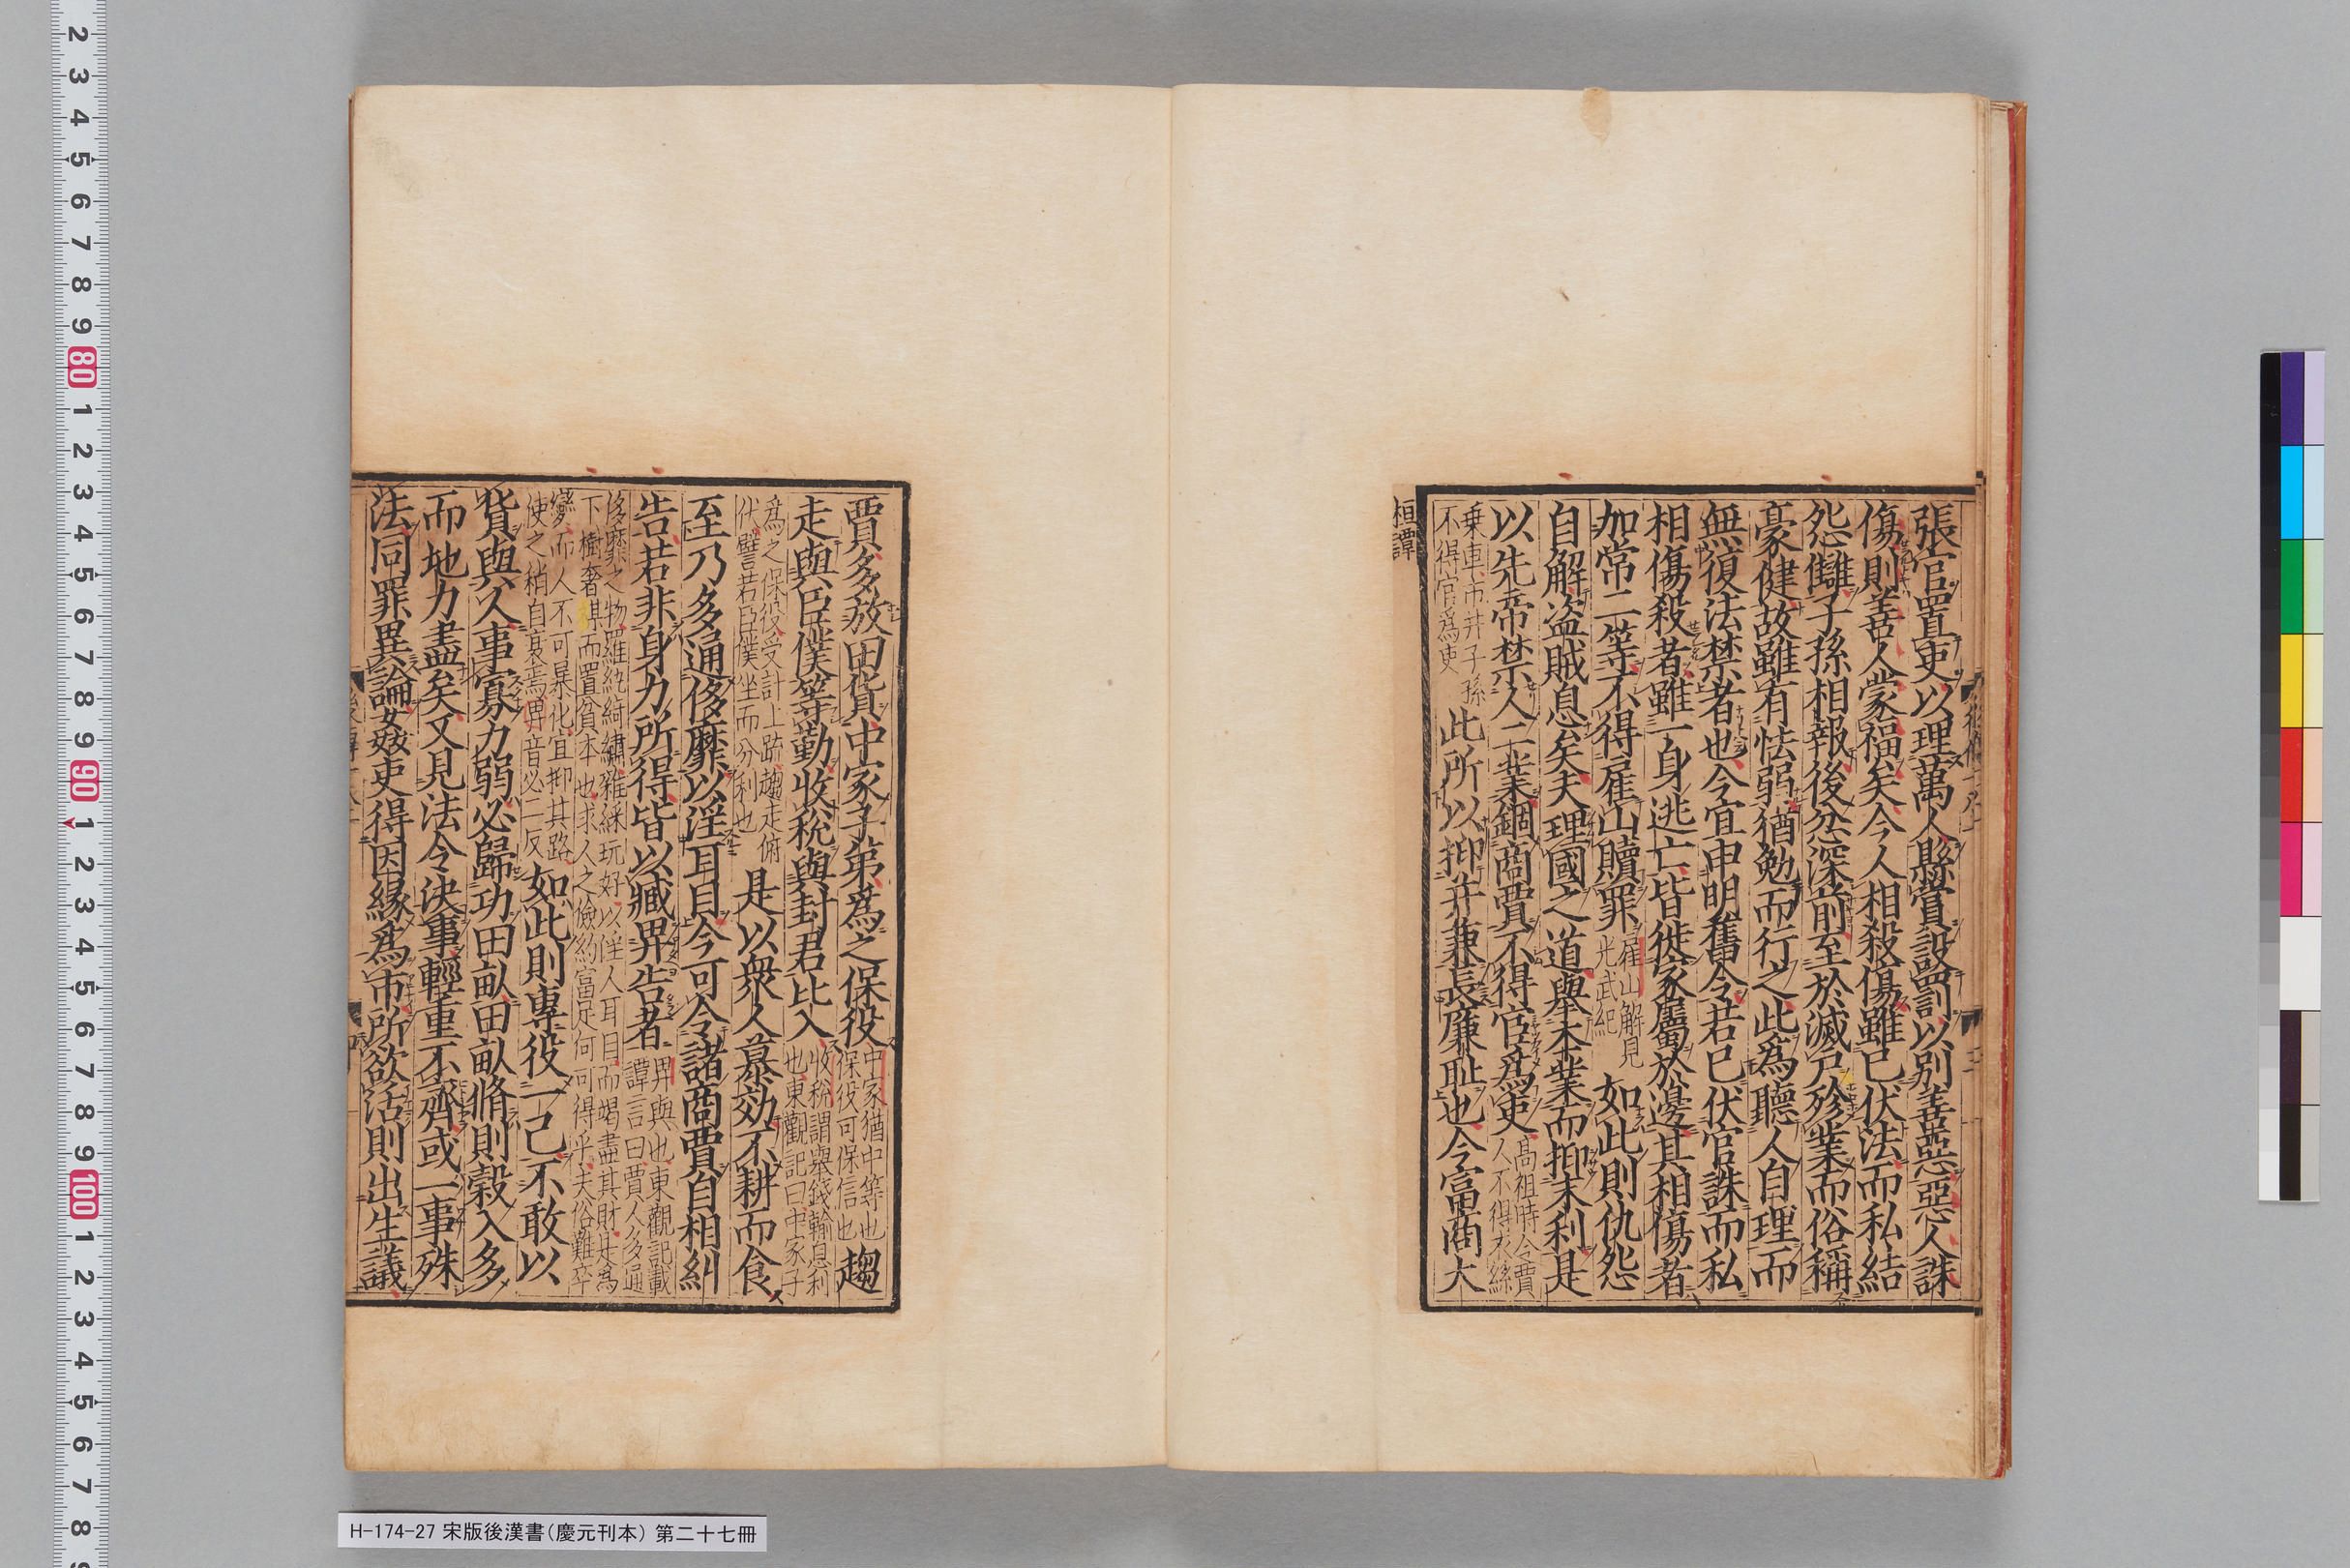 張官置吏以理萬人縣賞設罰以別善惡惡人誅
傷則善人蒙福矣今人相殺傷雖已伏法而私結
怨讎子孫相報後忿深前至於滅戶殄業而俗稱
豪健故雖有怯弱猶勉而行之此爲聽人自理而
無復法禁者也今宜申明舊令若已伏官誅而私
相傷殺者雖一身逃亡皆徙家屬於邊其相傷者
加常二等不得雇山贖罪
雇山解見
光武紀
如此則仇怨
自解盗賊息矣夫理國之道舉本業而抑末利是
以先帝禁人二業錮商賈不得宦爲吏
高祖時令賈
人不得衣絲
乗車市井子孫
不得官爲吏
此所以抑并兼長廉耻也今富商大
桓譚
賈多放田貨中家子弟爲之保役
中家猶中等也
保役可保信也
趨
走與臣僕等勤收稅與封君比入
收稅謂舉錢輸息利
也東觀記曰中家子
爲之保役受計上疏趨走俯
伏譬若臣僕坐而分利也
是以衆人慕効不耕而食
至乃多通侈靡以淫耳目今可令諸商賈自相糾
告若非身力所得皆以臧畀告者
畀與也東觀記載
譚言曰賈人多通
侈靡之物羅紈綺繡雜綵玩好以淫人耳目而竭盡其財是爲
下樹奢媒而置貧本也求人之儉約富足何可得乎夫俗難卒
變而人不可暴化宜抑其路
使之稍自衰焉畀音必二反
如此則專役一己不敢以
貨與人事寡力弱必歸功田畝田畝脩則穀入多
而地力盡矣又見法令決事輕重不齊或一事殊
法同罪異論姦吏得因緣爲市所欲活則出生議
H-174-27 宋版後漢書(慶元刊本) 第二十七冊